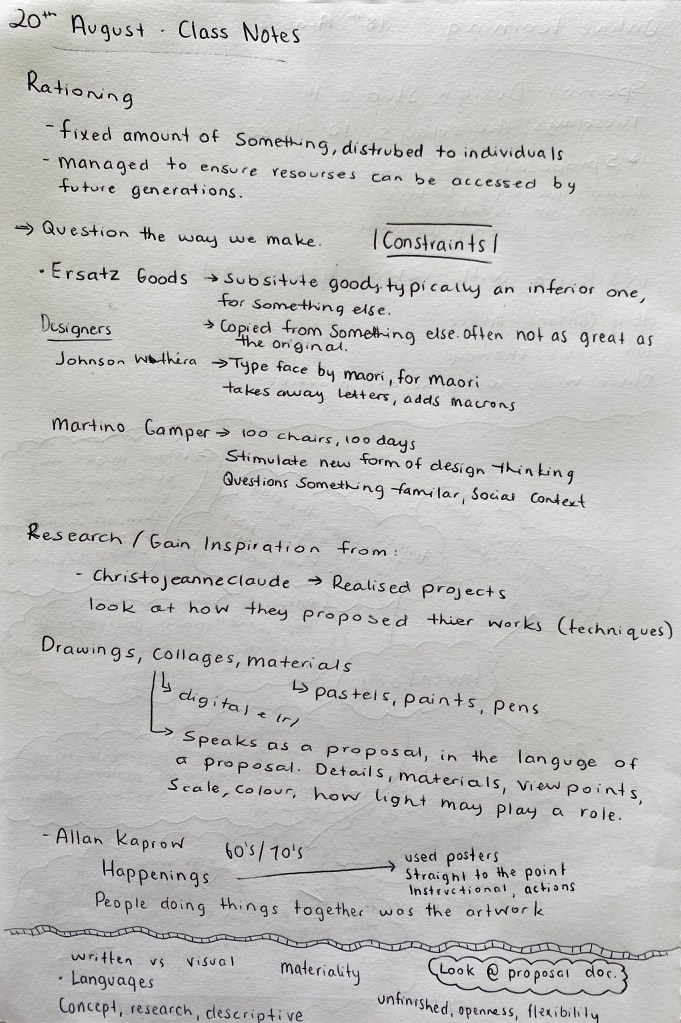 20th August · Class Notes
Rationing
- fixed amount of Something, distrubed to individuals
- managed to ensure resourses can be accessed by
future generations.
⇒ Question the way we make. |Constraints|
· Ersatz Goods → Subsitute goods, typically an inferior one,
for something else.
→ Copied from Something else. often not as great as
the original.
Designers
Johnson Witehira → Type face by maori, for maori
takes away letters, adds macrons
Martino Gamper → 100 chairs, 100 days
Stimulate new form of design thinking
Questions Something familar, Social Context
Research / Gain Inspiration from:
- Christojeanneclaude → Realised projects
look at how they proposed thier works (techniques)
Drawings, collages, materials
↳ digital + irl
↳ pastels, paints, pens
→ Speaks as a proposal, in the languge of
a proposal. Details, materials, view points,
Scale, colour, how light may play a role.
- Allan Kaprow 60's/70's
Happenings → used posters
Straight to the point
Instructional, actions
People doing things together was the artwork
written vs visual
· Languages
materiality
Look @ proposal doc.
Concept, research, descriptive
unfinished, openness, flexibility